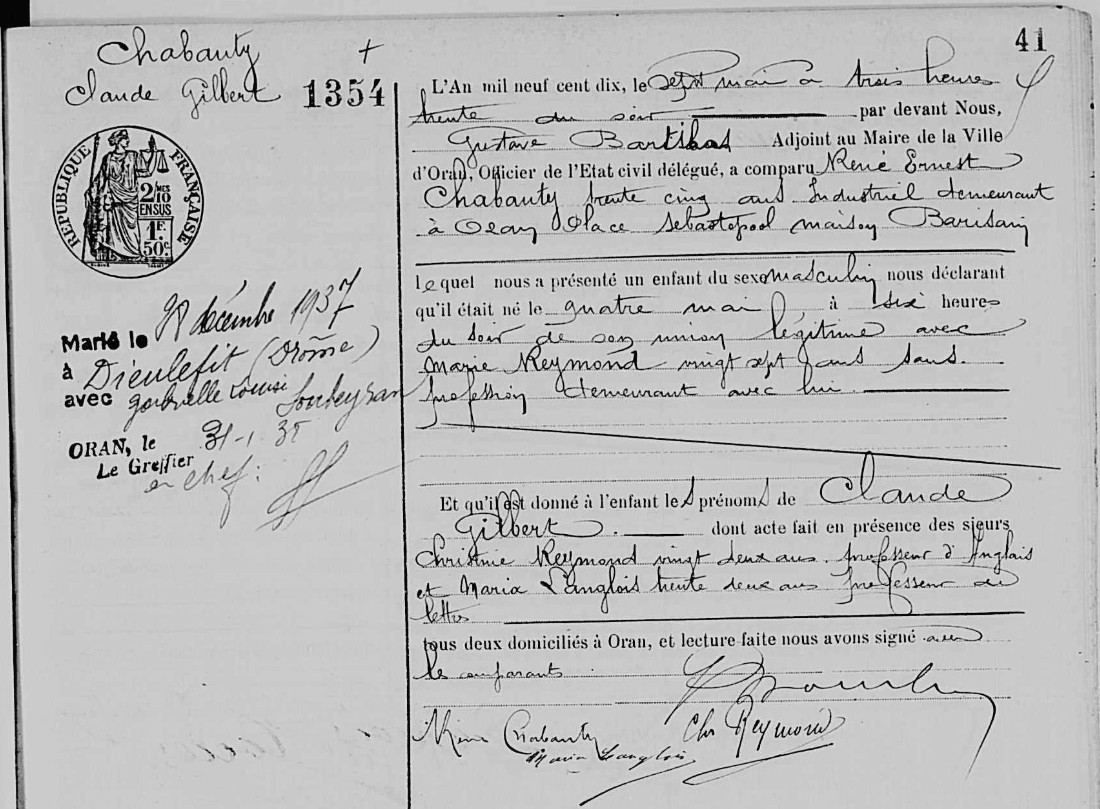 41
Chabauty
Claude Gilbert 1354
RÉPUBLIQUE FRANÇAISE
2/10MES
EN SUS
1F.
50c
Marié le 28 décembre 1937
à Dieulefit (Drôme)
avec Gabrielle Louise Soubeyran
ORAN, le 31-1 38
Le Greffier
en chef:
L'An mil neuf cent dix, le sept mai à trois heures
trente du soir par devant Nous,
Gustave Adjoint au Maire de la Ville
d'Oran, Officier de l'Etat civil délégué, a comparu René Ernest
Chabauty trente cinq ans Industriel demeurant
à Oran Place Sebastopool maison Barisain
lequel nous a présenté un enfant du sexe masculin nous déclarant
qu'il était né le quatre mai à six heures
du soir de son union légitime avec
Marie Reymond vingt sept ans sans
profession demeurant avec lui
Et qu'il est donné à l'enfant les prénoms de Claude
Gilbert. dont acte fait en présence des sieurs
Christine Reymond vingt deux ans professeur d'Anglais
et Maria Langlois trente deux ans professeur de
lettres
tous deux domiciliés à Oran, et lecture faite nous avons signé avec
les comparants
René Chabauty Chr Reymond
Maria Langlois